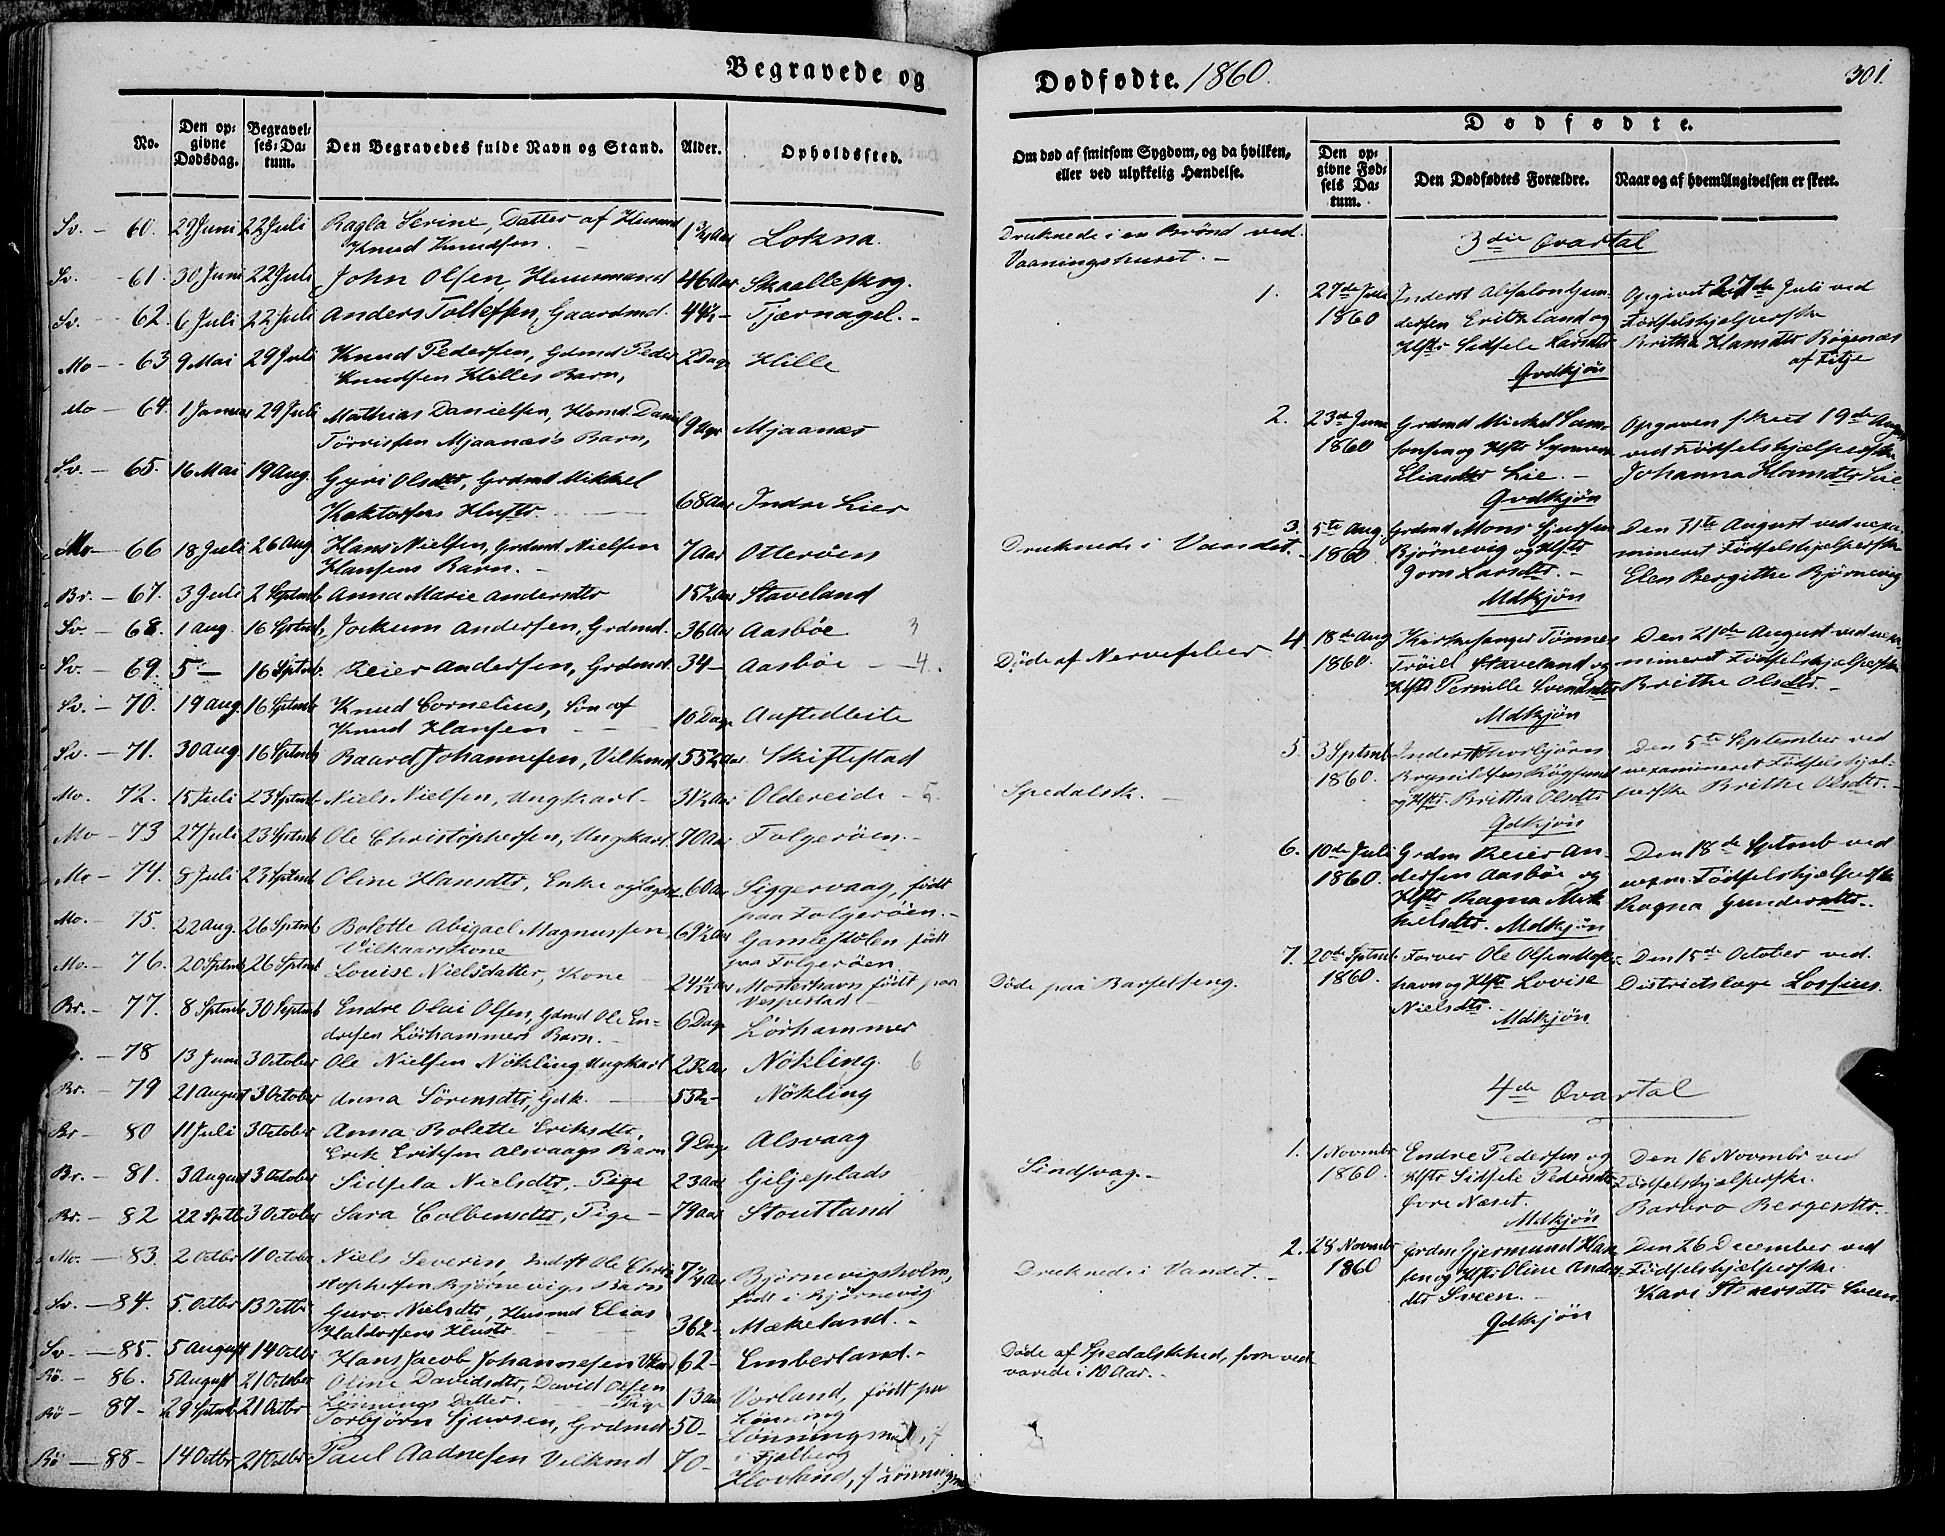 Begravede og
Dødfødte. 1860.
301.
No.
Den opgivne Dødsdag.
Begravelses-Datum.
Den Begravedes fulde Navn og Stand.
Alder.
Opholdssted.
Om død af smitsom Sygdom, og da hvilken, eller ved ulykkelig Hændelse.
Dødfødte.
Den opgivne Fødsels Datum.
Den Dødfødtes Forældre.
Naar og af hvem Angivelsen er skeet.
Sv. – 60. 29 Juni 22 Juli Ragla Serine, Datter af Husmd Knud Knudsen. 1 3/4 Aar Lokna. Druknede i en Brønd ved Vaaningshuset. –
Sv. – 61. 30 Juni 22 Juli John Olsen, Huusmand 46 Aar Skaalleskog.
Sv. – 62. 6 Juli 22 Juli Anders Tollefsen, Gaardmd. 44½ – Tjærnagel. –
Mo – 63 9 Mai 29 Juli Knud Pedersen, Grdmd Peder Knudsen Hilles Barn, 2 Dage Hille
Mo – 64. 1 Januar 29 Juli Mathias Danielsen, Husmd. Daniel Mjaanæs's Barn, Mjaanæs
Sv. – 65. 16 Mai 19 Aug. Gyri Olsdtr, Grdmd Mikkel Hustr. 68 Aar Indre Lier
Mo – 66 18 Juli 26 Aug. Hans Nielsen, Grdmd Nielsen Hansens Barn. – 7 Aar Otterøen Druknede i Vandet.
Br. – 67. 3 Juli 2 Septmb Anna Marie Andersdtr 15½ Aar Staveland
Sv. – 68. 1 Aug. 16 Septmb. Jockum Andersen, Grdmd. 36 Aar Aasbøe 3
Sv. – 69. 5 – 16 Septmb. Reier Andersen, Grdmd. 34 – Aasbøe – 4. Døde af Nervefeber
Sv. – 70. 19 Aug. 16 Septmb Knud Cornelius, Søn af Knud Hansen 10 Dage
Sv. – 71. 30 Aug. 16 Septmb Baard Johannesen, Vilkmd 55½ Aar Skiftestad
Mo. – 72. 15 Juli 23 Septmb. Niels Nielsen, Ungkarl – 31½ Aar Oldereide – 5. Spedalsk. –
Mo – 73 27 Juli 23 Septmb. Ole Christophersen, Ungkarl 70 Aar Folgerøen. –
Mo – 74. 8 Juli 23 Septmb Oline Hansdtr, Enke 60 Aar Siggervaag, født paa Folgerøen. –
Mo. – 75. 22 Aug. 26 Septmb Bolette Abigael Magnussen, Vilkaarskone 69½ Aar Gamlestølen født paa Folgerøen
Mo. – 76. 20 Septmb 26 Septmb Louise Nielsdatter, Kone 24 Mosterhavn født paa Vespestad Døde paa Barselseng.
Br. – 77. 8 Septmb 30 Septmb Endre Olai Olsen, Grdmd Ole Endresen Lørhammers Barn. 6 Dage Lørhammer
78 13 Juni 3 October Ole Nielsen Nökling Ungkarl 25½ Aar Nökling. 6
Br. – 79 21 August 3 October Anna Sörensdtr, Gdk. 55½ – Nökling
Br – 80 11 Juli 3 October Anna Bolette Eriksdtr, Erik Eriksen Alsvaags Barn 9 Dage Alsvaag
Br. – 81. 3 August 3 October Sidsela Nielsdtr, – Pige 23 Aar Giljeplads Sindsvag. –
Br. – 82 22 Septb 3 October Sara Colbensdtr, Pige – 79 Aar Stoutland
Mo. – 83. 2 Octbr 11 October Niels Severin, Indst Ole Christophersen Bjørnevigs Barn 7½ Aar Bjørnevigsholm, født i Bjørnevig Druknede i Vandet. –
Sv. – 84. 5 Octbr 13 Octbr Guro Nielsdtr, Husmd Elias Haldorsens Hustr. 36½ – Mækeland. –
Sv. – 85. 5 August 14 Octbr Hans Jacob Johannesen 62 – Emberland. – Døde af Spedalskhed, som vedvarede i 10 Aar. –
Bö. – 86. 5 August 21 October Oline Davidsdtr, David Olsen Lönnings Datter. Pige 13 Aar Vorland, født paa Lönning
Bö – 87 – 29 Septmb 21 Octbr Torbjörn Sjursen, Grdmd 50 – i Fjelberg
Bö – 88 – 14 Octbr 21 Octbr Paul Aadnesen Vilkmd 70 – Hovland,
3die Qvartal
1. 27de Juli 1860 Inderst Absalon Gundersen Eritsland og Hstr Sidsele Larsdtr Gudkjön Opgivet 27de Juli ved Fødselshjelperske Britha Hansdtr Bøgenæs af Fitje
2. 23de Juni 1860 Grdmd Mickel Samsonsen og Hstr Eliasdtr Lie. – Gudkjön Opgaven skeet 19de Aug. ved Fødselshjælperske Johanna Hansdtr Lie
3. 5te Aug. 1860. Grdmd Mons Sjursen Bjørnevig og Hstr Larsdtr. – Mdkjön Den 31te August ved uexamineret Fødselshjelperske Elen Bergithe Bjørnevig
4. 18de Aug 1860. Kirkesanger Tønnes Staveland og Hstr Pernille Svendsdtr Mdkjön Den 21de August ved uexamineret Fødselshjælperske Brithe Olsdtr. –
5. 3 Septmb. 1860. Inderst Thorbjörn Brynildsen og Hstr. Britha Olsdtr Gdkjön Den 5te September ved uexamineret Fødselshjelperske Brithe Olsdtr. –
6. 10de Juli 1860. Grdm Reier Andersen Aasbøe og Hstr Ragna Mikkelsdtr. Mdkjön Den 18de Septmb ved uexm. Fødselshjelperske Ragna Gundersdtr. –
7. 20de Septmb. 1860 Farver Ole Olsen Mosterhavn og Hstr Lovise Nielsdtr. Mdkjön Den 15de October ved. Districtslæge Lossius.
4de Qvartal
1. 1 Novmbr 1860. Endre Pedersen og Hstr Sidsele Pedersdtr Øvre Næset. Mdkjön Den 16 Novmbr ved Fødselshjælperske. Barbro Bergesdtr.
2. 28 Novmbr 1860 Grdm Gjermund Hansen og Hstr Oline Andersdtr Sveen. – Gdkjön Den 26 December ved Fødselshjælperske. Kari Sveen.